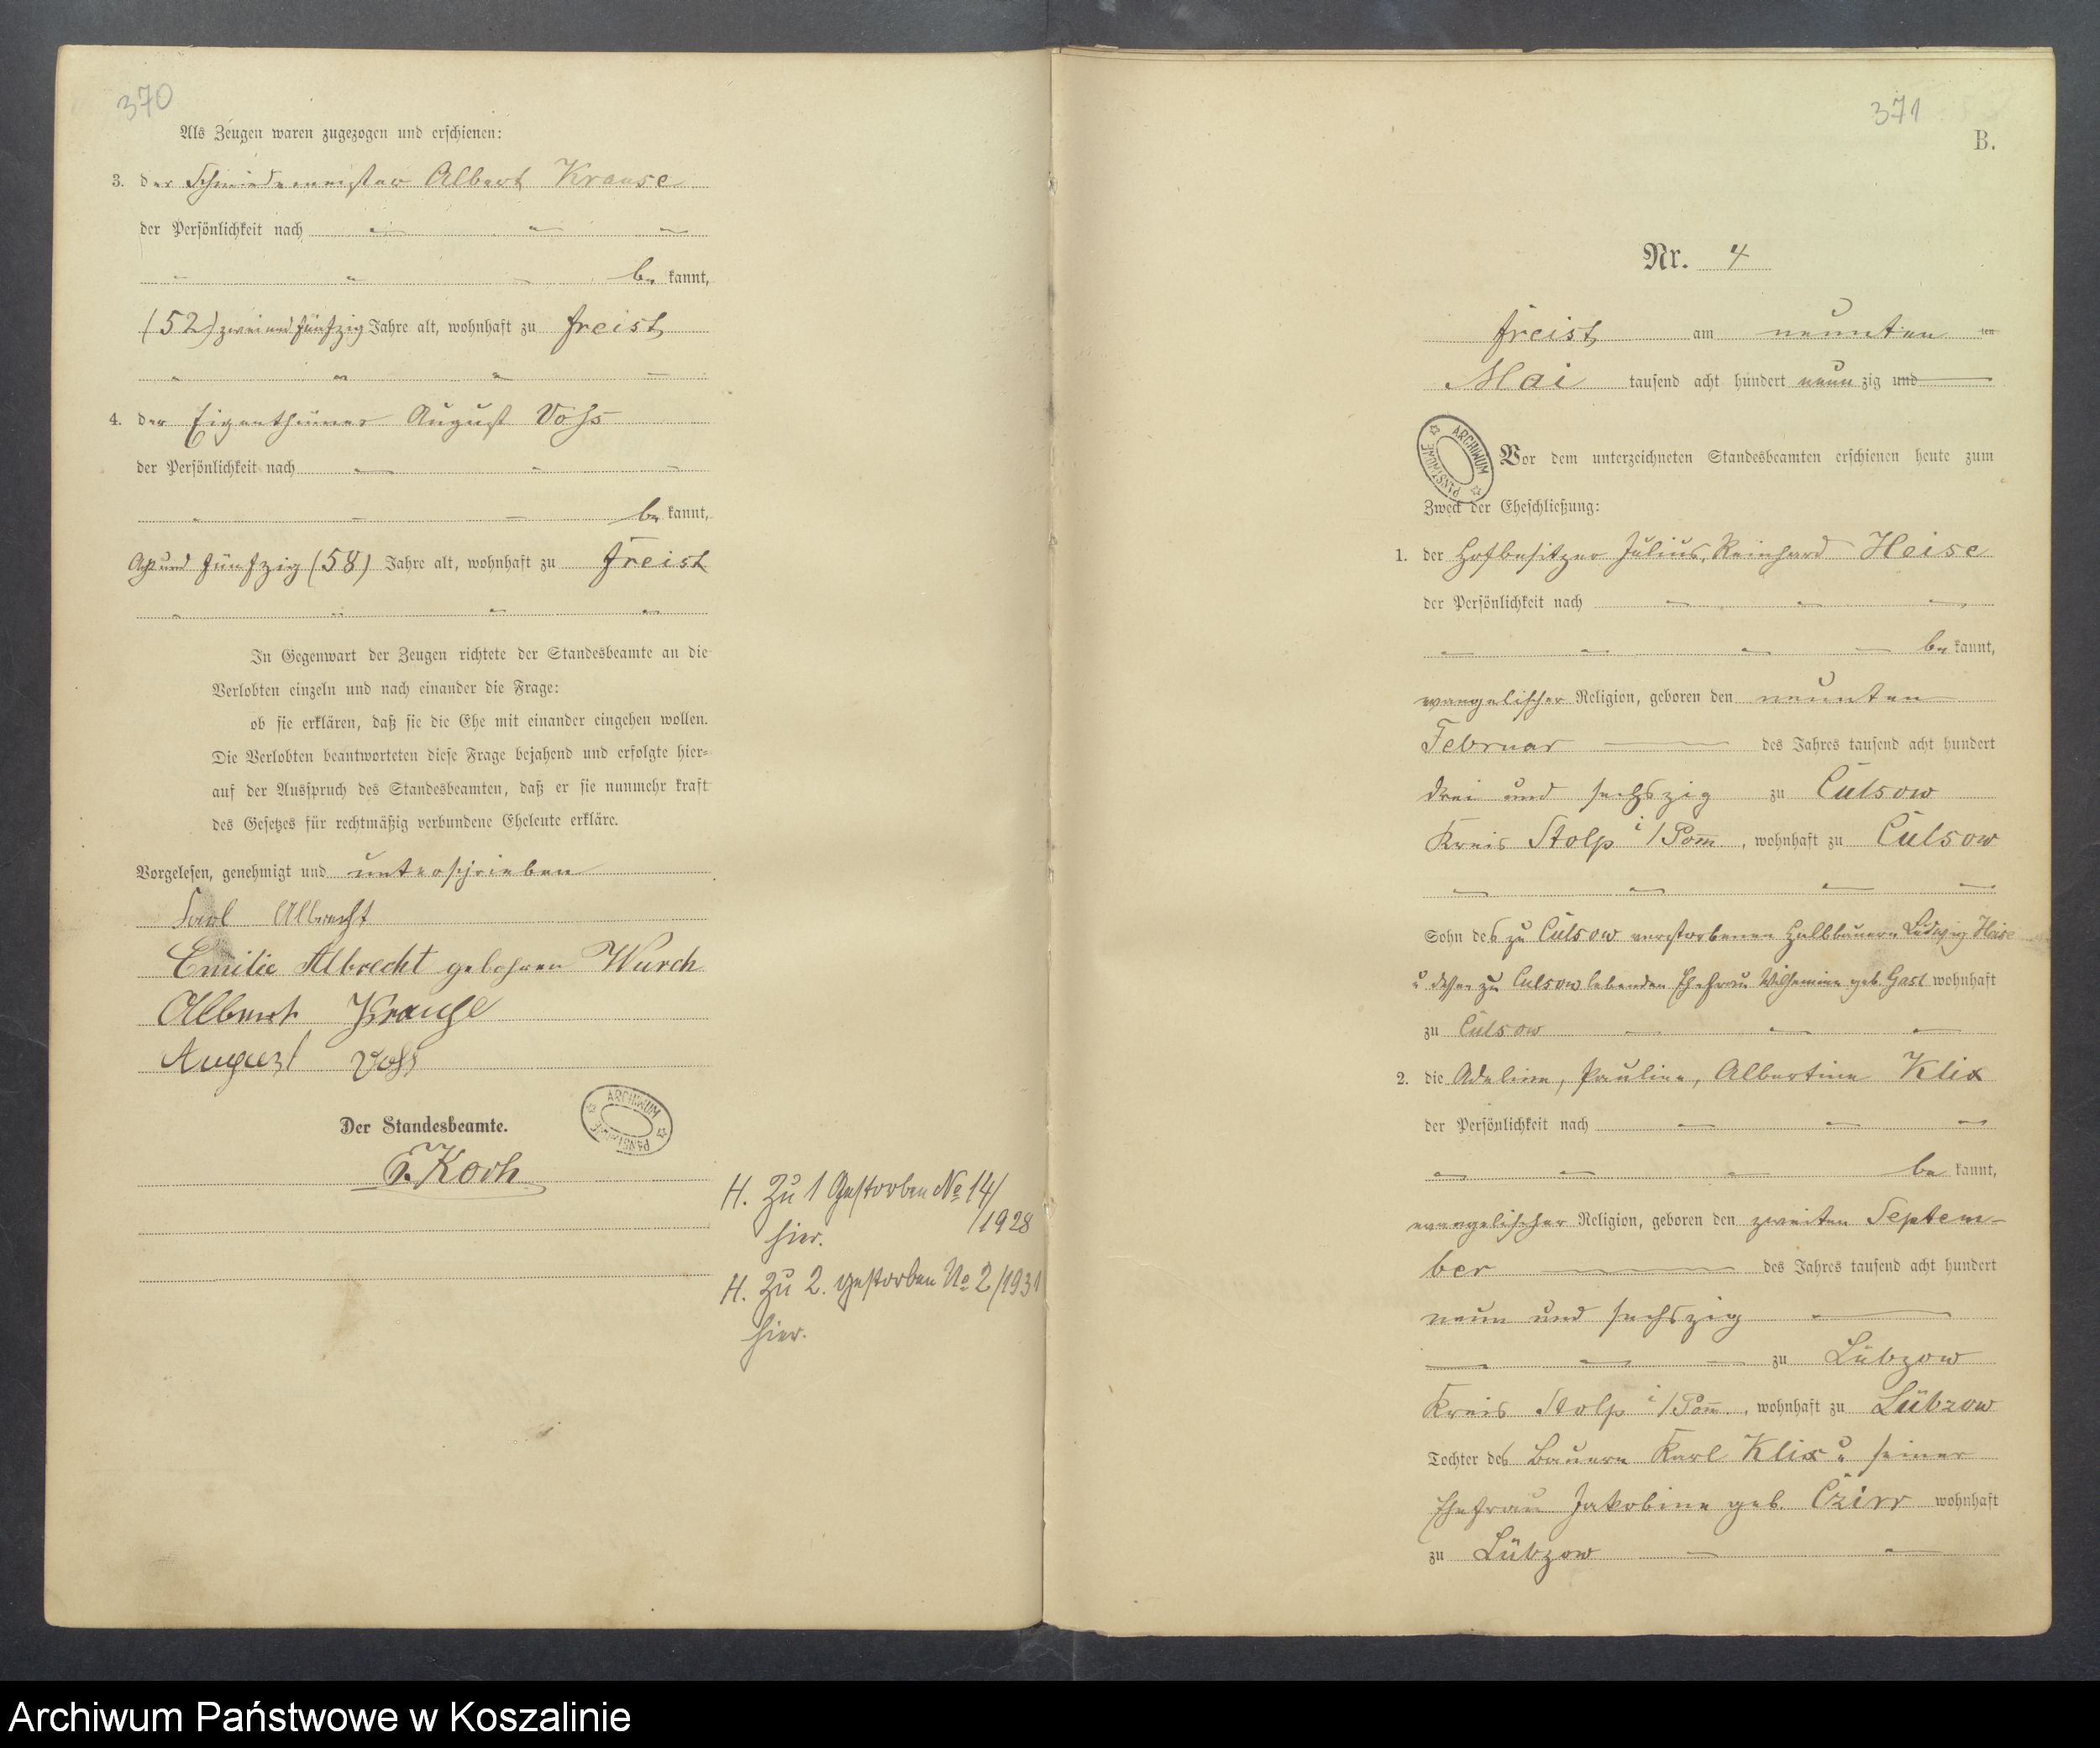 370
Als Zeugen waren zugezogen und erschienen:
3. der Schmiedemeister Albert Krause
der Persönlichkeit nach
be kannt,
(52) zweiundfünfzig Jahre alt, wohnhaft zu Freist
4. der Eigenthümer August Voß
der Persönlichkeit nach
be kannt,
Acht und fünfzig (58) Jahre alt, wohnhaft zu Freist
In Gegenwart der Zeugen richtete der Standesbeamte an die
Verlobten einzeln und nach einander die Frage:
ob sie erklären, daß sie die Ehe mit einander eingehen wollen.
Die Verlobten beantworteten diese Frage bejahend und erfolgte hier=
auf der Ausspruch des Standesbeamten, daß er sie nunmehr kraft
des Gesetzes für rechtmäßig verbundene Eheleute erkläre.
Vorgelesen, genehmigt und unterschrieben
Carl Albrecht
Emilie Albrecht gebohren Wurch
Albert Krause
August Voß
Der Standesbeamte.
Koch
ARCHIWUM PAŃSTWOWE
H. Zu 1 Gestorben No 14/
1928
hier.
H. Zu 2. gestorben No 2/1931
hier.
371
B.
Nr. 4
Freist am neunten ten
Mai tausend acht hundert neun zig und
ARCHIWUM PAŃSTWOWE
Vor dem unterzeichneten Standesbeamten erschienen heute zum
Zweck der Eheschließung:
1. der Hofbesitzer Julius, Reinhard Heise
der Persönlichkeit nach
be kannt,
evangelischer Religion, geboren den neunten
Februar des Jahres tausend acht hundert
drei und sechszig zu Culsow
Kreis Stolp i/Pom., wohnhaft zu Culsow
Sohn des zu Culsow verstorbenen Halbbauern Ludwig Heise
u dessen zu Culsow lebenden Ehefrau Wilhemine geb. Gast wohnhaft
zu Culsow
2. die Adeline, Pauline, Albertine Klix
der Persönlichkeit nach
be kannt,
evangelischer Religion, geboren den zweiten Septem-
ber des Jahres tausend acht hundert
neun und sechszig
zu Lübzow
Kreis Stolp i/Pom., wohnhaft zu Lübzow
Tochter des Bauern Karl Klix u seiner
Ehefrau Jakobine geb. Czirr wohnhaft
zu Lübzow
Archiwum Państwowe w Koszalinie